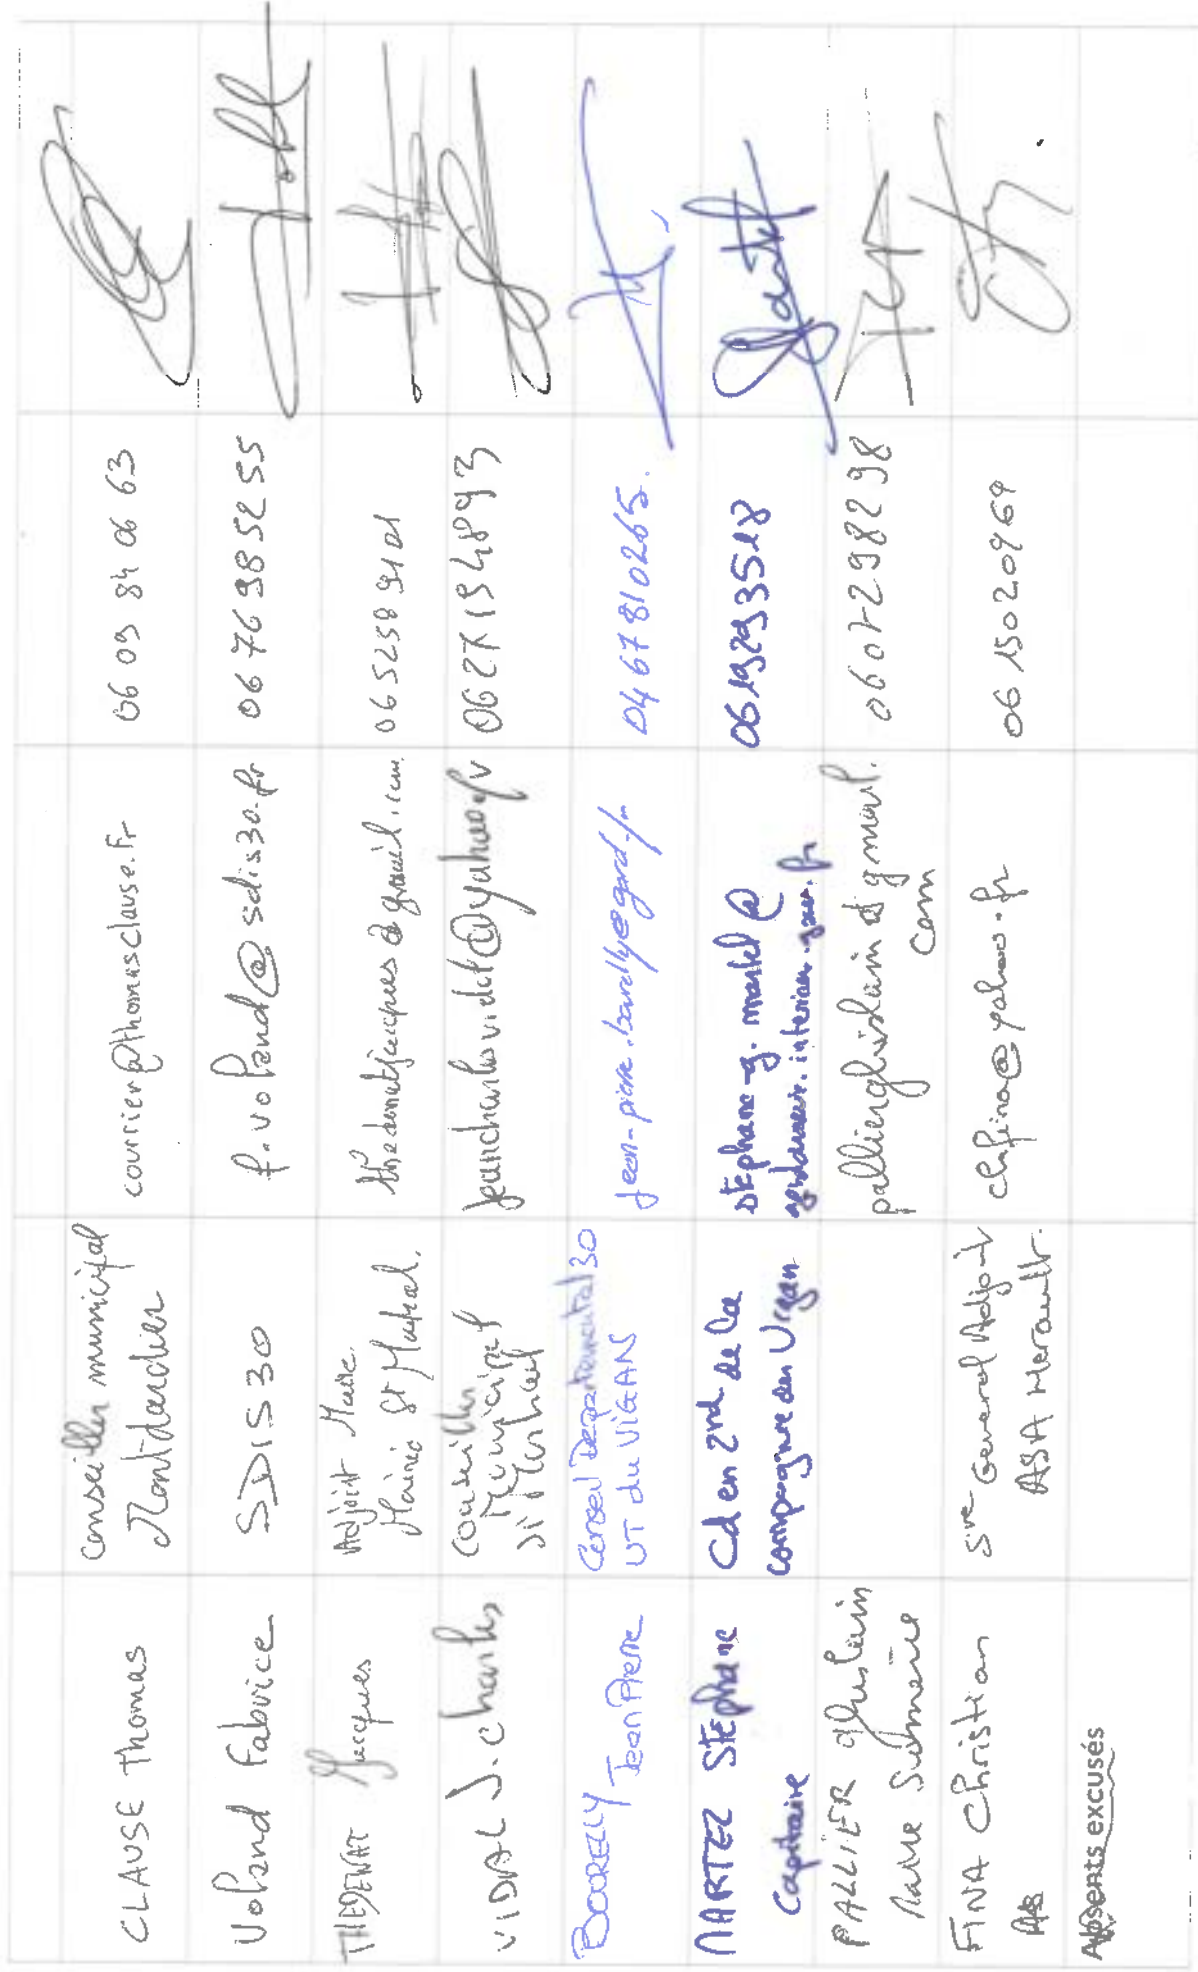 CLAUSE Thomas
Conseiller municipal
Montdardier
courrier@thomasclause.fr
06 09 84 06 63
Voland Fabrice
SDIS 30
f.voland@sdis30.fr
06 76 98 52 55
THEDENAT Jacques
Adjoint Maire.
Mairie St Martial.
thedenatjacques@gmail.com
06 52 58 91 01
VIDAL J. Charles
Conseiller
Municipal
St Martial
jeancharlesvidal@yahoo.fr
06 27 19 48 93
BOURELLY Jean Pierre
Conseil Départemental 30
UT du VIGAN
jean-pierre.bourelly@gard.fr
0467810265.
MARTEL STEphane
Capitaine
Cd en 2nd de la
compagnie du Vigan
stephane-g.martel@
gendarmerie.interieur.gouv.fr
0619293518
PALLIER Ghislain
Maire Sumène
pallierghislain@gmail.
com
0607298298
FINA Christian
Sre General Adjoint
ASA Herault.
ch.fina@yahoo.fr
06 15020969
Absents excusés